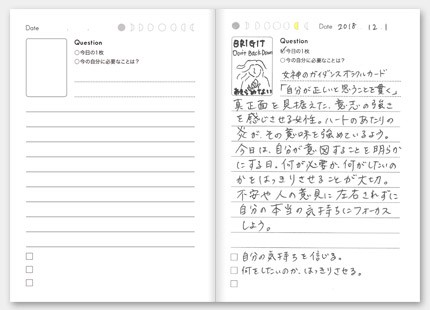 Date
Question
○今日の1枚
○今の自分に必要なことは?
Date 2018 12.1
BRIGIT
Don't Back Down
あきらめない
Question
○今日の1枚
○今の自分に必要なことは?
女神のガイダンスオラクルカード
「自分が正しいと思うことを貫く」
真正面を見据えた、意志の強さ
を感じさせる女性。ハートのあたりの
炎が、その意味を強めているよう。
今日は、自分が意図することを明らか
にする日。何が必要か、何がしたいの
かをはっきりさせることが大切。
不安や人の意見に左右されずに
自分の本当の気持ちにフォーカス
しよう。
自分の気持ちを信じる。
何をしたいのか、はっきりさせる。